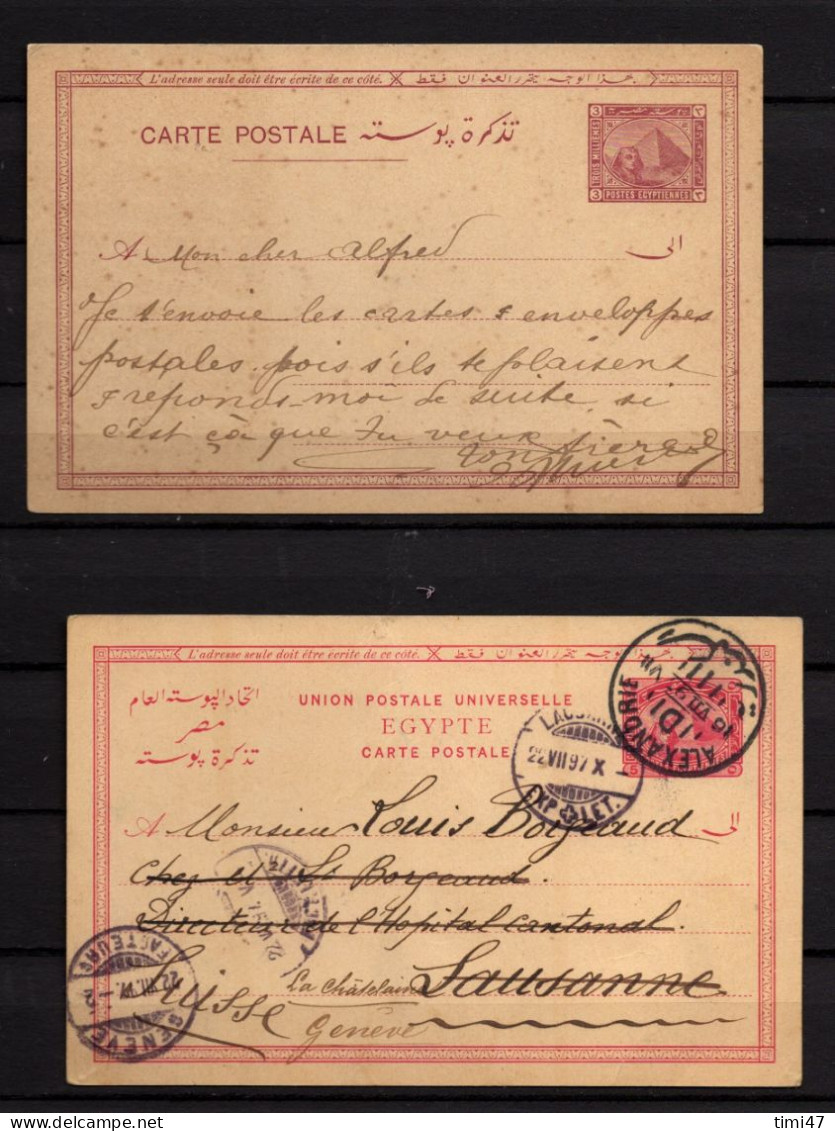 L'adresse seule doit être écrite de ce côté. بهذا الوجه يتحرر العنوان فقط
CARTE POSTALE تذكرة پوسته
3 ٣
TROIS MILLIEMES
3 POSTES EGYPTIENNES ٣
A Mon cher Alfred الى
Je t'envoie les cartes & enveloppes
postales. pois s'ils te plaisent
& reponds-moi de suite si
c'est çà que tu veux
ton frère
L'adresse seule doit être écrite de ce côté. بهذا الوجه يتحرر العنوان فقط
اتحاد البوسته العام
مصر
تذكرة پوسته
UNION POSTALE UNIVERSELLE
EGYPTE
CARTE POSTALE
ALEXANDRIE
16 VII 97
LAUSANNE
22 VII 97 X
EXP. LET.
5
A Monsieur Louis Borgeaud الى
Chez M. Borgeaud
Directeur de l'Hopital cantonal
Lausanne
Suisse
La Châtelaine
Genève
22 VII 97
GENÈVE
22 VII 97
FACTEURS
delcampe.net
timi47